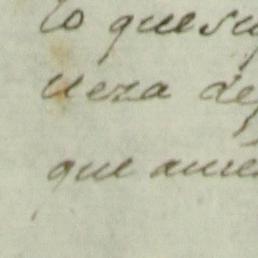 lo que su
ueza de
que